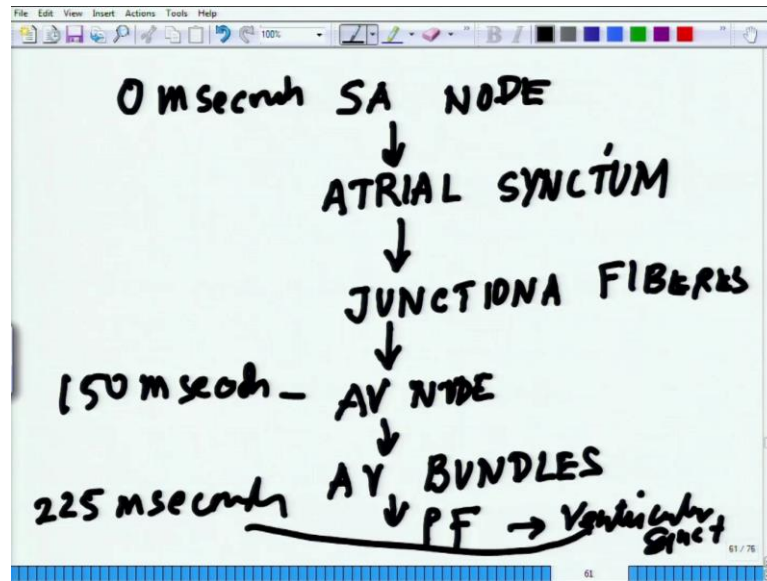 File Edit View Insert Actions Tools Help
100%
B I
0 msecnds SA NODE
ATRIAL SYNCTIUM
JUNCTIONA FIBERES
150 mseods - AV NODE
AV BUNDLES
225 mseconds PF → Ventricular
Sinct
61 / 76
61